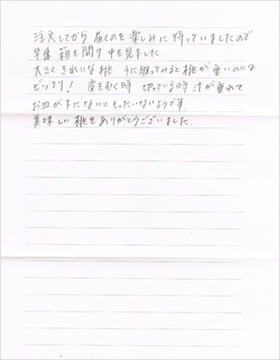 注文してから 届くのを 楽しみに 待っていましたので
早速 箱を開け 中を見ました
大きく きれいな桃 手に取ってみると 桃が重いのには
ビックリ! 皮をむく時 切っている時 汁が垂れて
お皿が下にないと もったいないようです.
美味しい桃をありがとうございました.